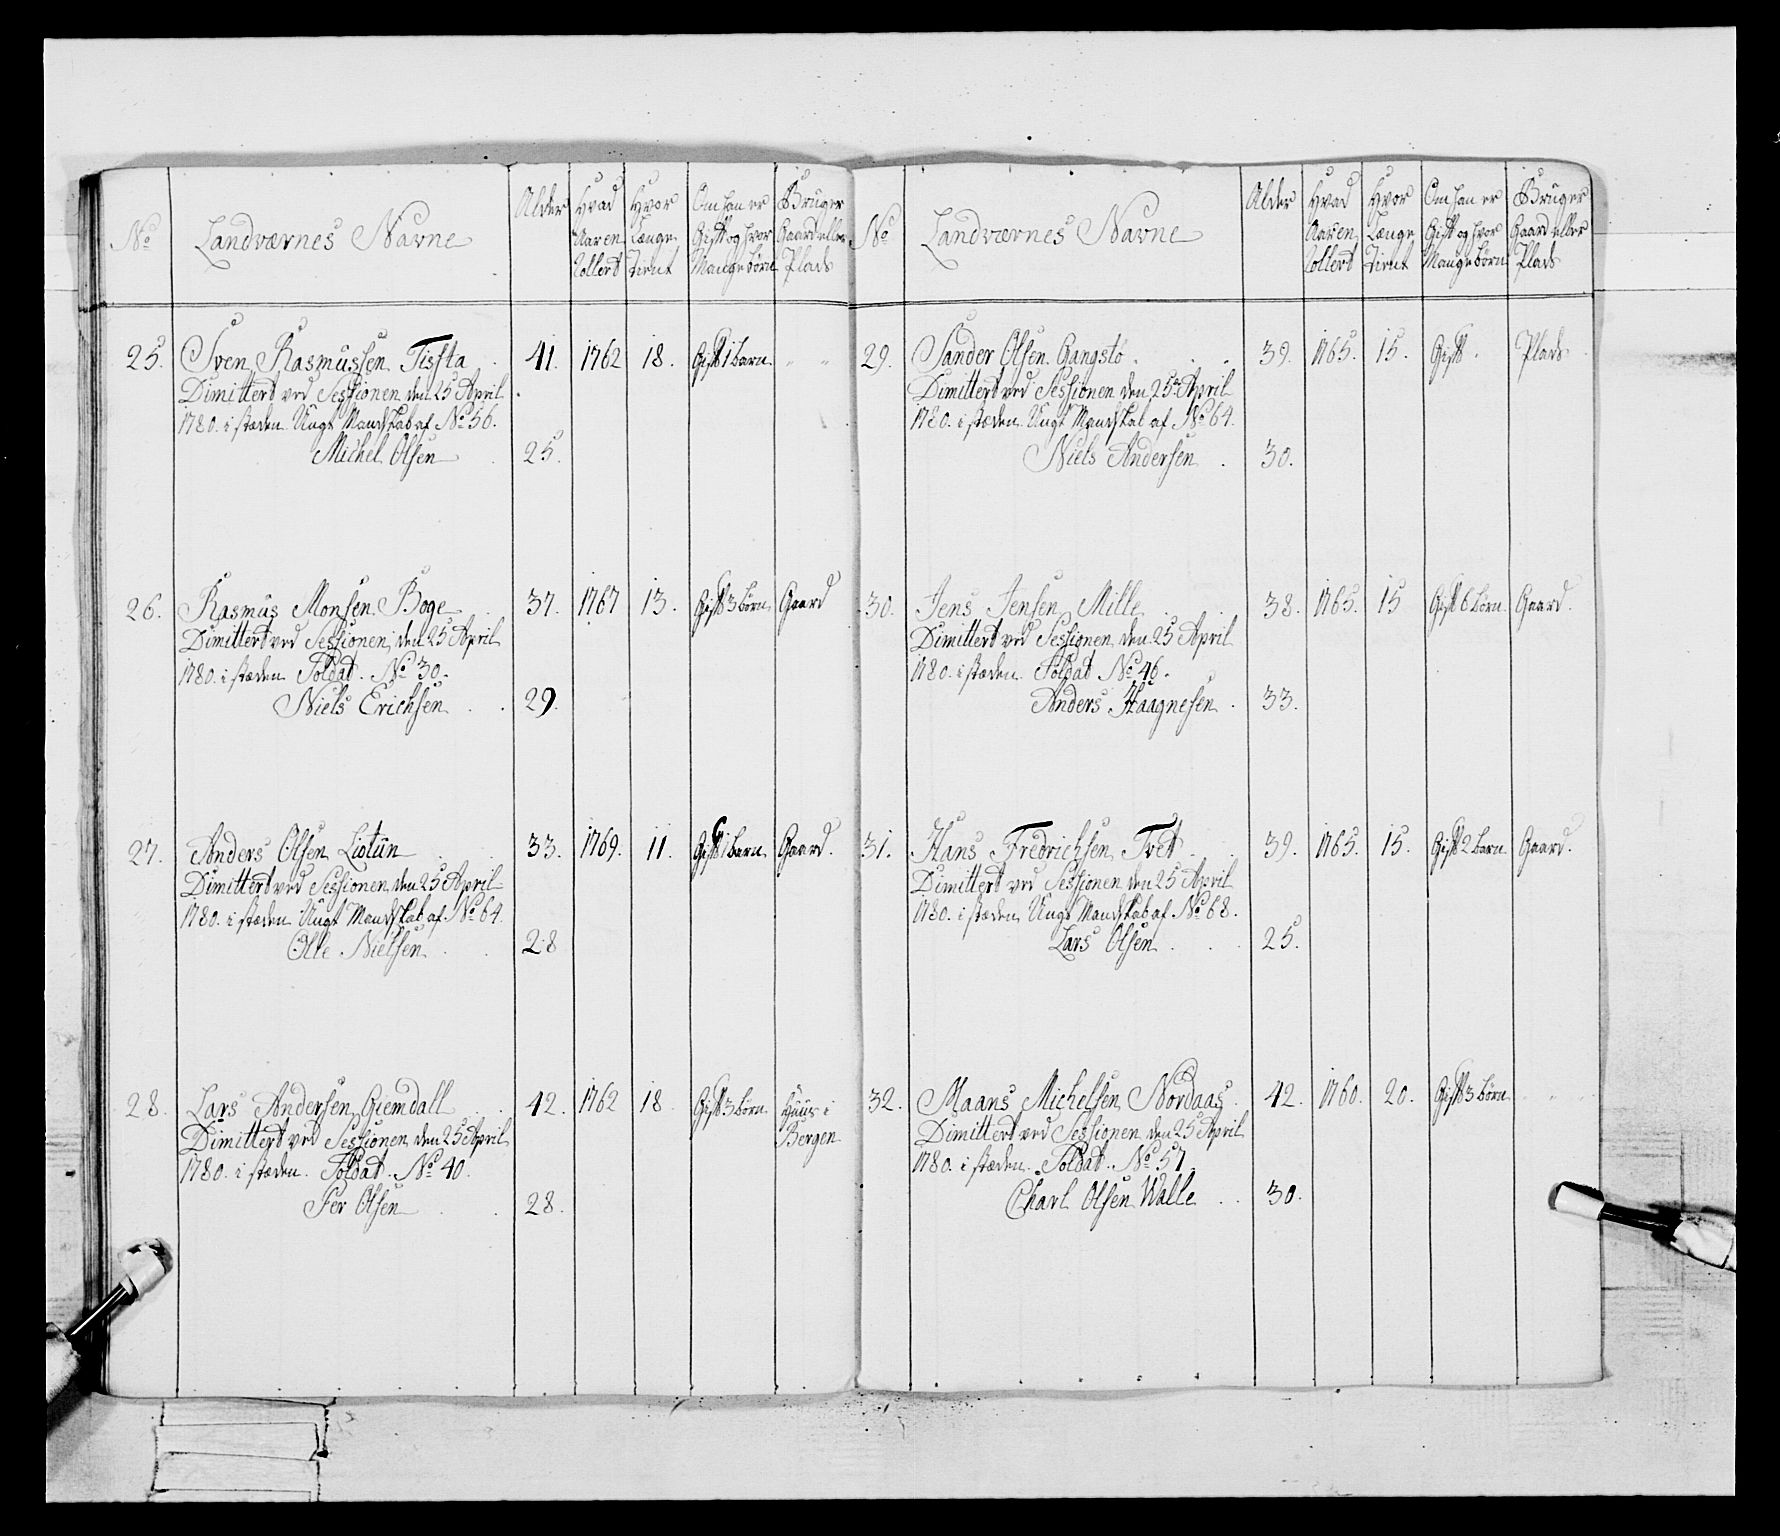 No
Landværnes Navne
Alder
Hvad Aar en Rollert
Hvor Længe Tient
Om han er Gift og hvor Mange børn
Bruger Gaard eller Plads
25. Sven Rasmussen Tissta . 41. 1762 18. Gift 1 barn. " "
Dimittert ved Sessionen den 25 April
1780. i stæden Ungt Mandskab af No 56.
Michel Olsen . 25.
26. Rasmus Monsen Boge . 37. 1767 13. Gift 3 børn. Gaard
Dimittert ved Sessionen den 25 April
1780. i stæden Soldat. No 30.
Niels Erichsen . . 29.
27. Anders Olsen Liotun . 33. 1769. 11. Gift 1 barn. Gaard.
Dimittert ved Sessionen den 25 April
1780. i stæden Ungt Mandskab af No 64.
Olle Nielsen . . 28
28. Lars Andersen Giemdall . 42. 1762 18. Gift 3 børn. Huus i
Bergen
Dimittert ved Sessionen den 25 April
1780. i stæden Soldat. No 40.
Per Olsen . . 28.
No
Landværnes Navne
Alder
Hvad Aar en Rollert
Hvor Længe Tient
Om han er Gift og hvor Mange børn
Bruger Gaard eller Plads
29. Sander Olsen Gangstø . . . 39. 1765. 15. Gift. Plads
Dimittert ved Sessionen den 25de April
1780. i stæden Ungt Mandskab af No 64.
Niels Andersen . 30.
30. Jens Jensen Mille . . 38. 1765. 15 Gift 6 børn. Gaard.
Dimittert ved Sessionen den 25 April
1780. i stæden Soldat No 46.
Anders Haagnesen . 33.
31. Hans Fredrichsen Tvet . . 39. 1765. 15. Gift 2 barn Gaard.
Dimittert ved Sessionen den 25 April
1780. i stæden Ungt Mandskab af No 68.
Lars Olsen . . . 25.
32. Maans Michelsen Nordaas . 42. 1760. 20. Gift 3 børn " "
Dimittert ved Sessionen den 25 April
1780. i stæden Soldat. No 57.
Charl Olsen Walle . . 30.